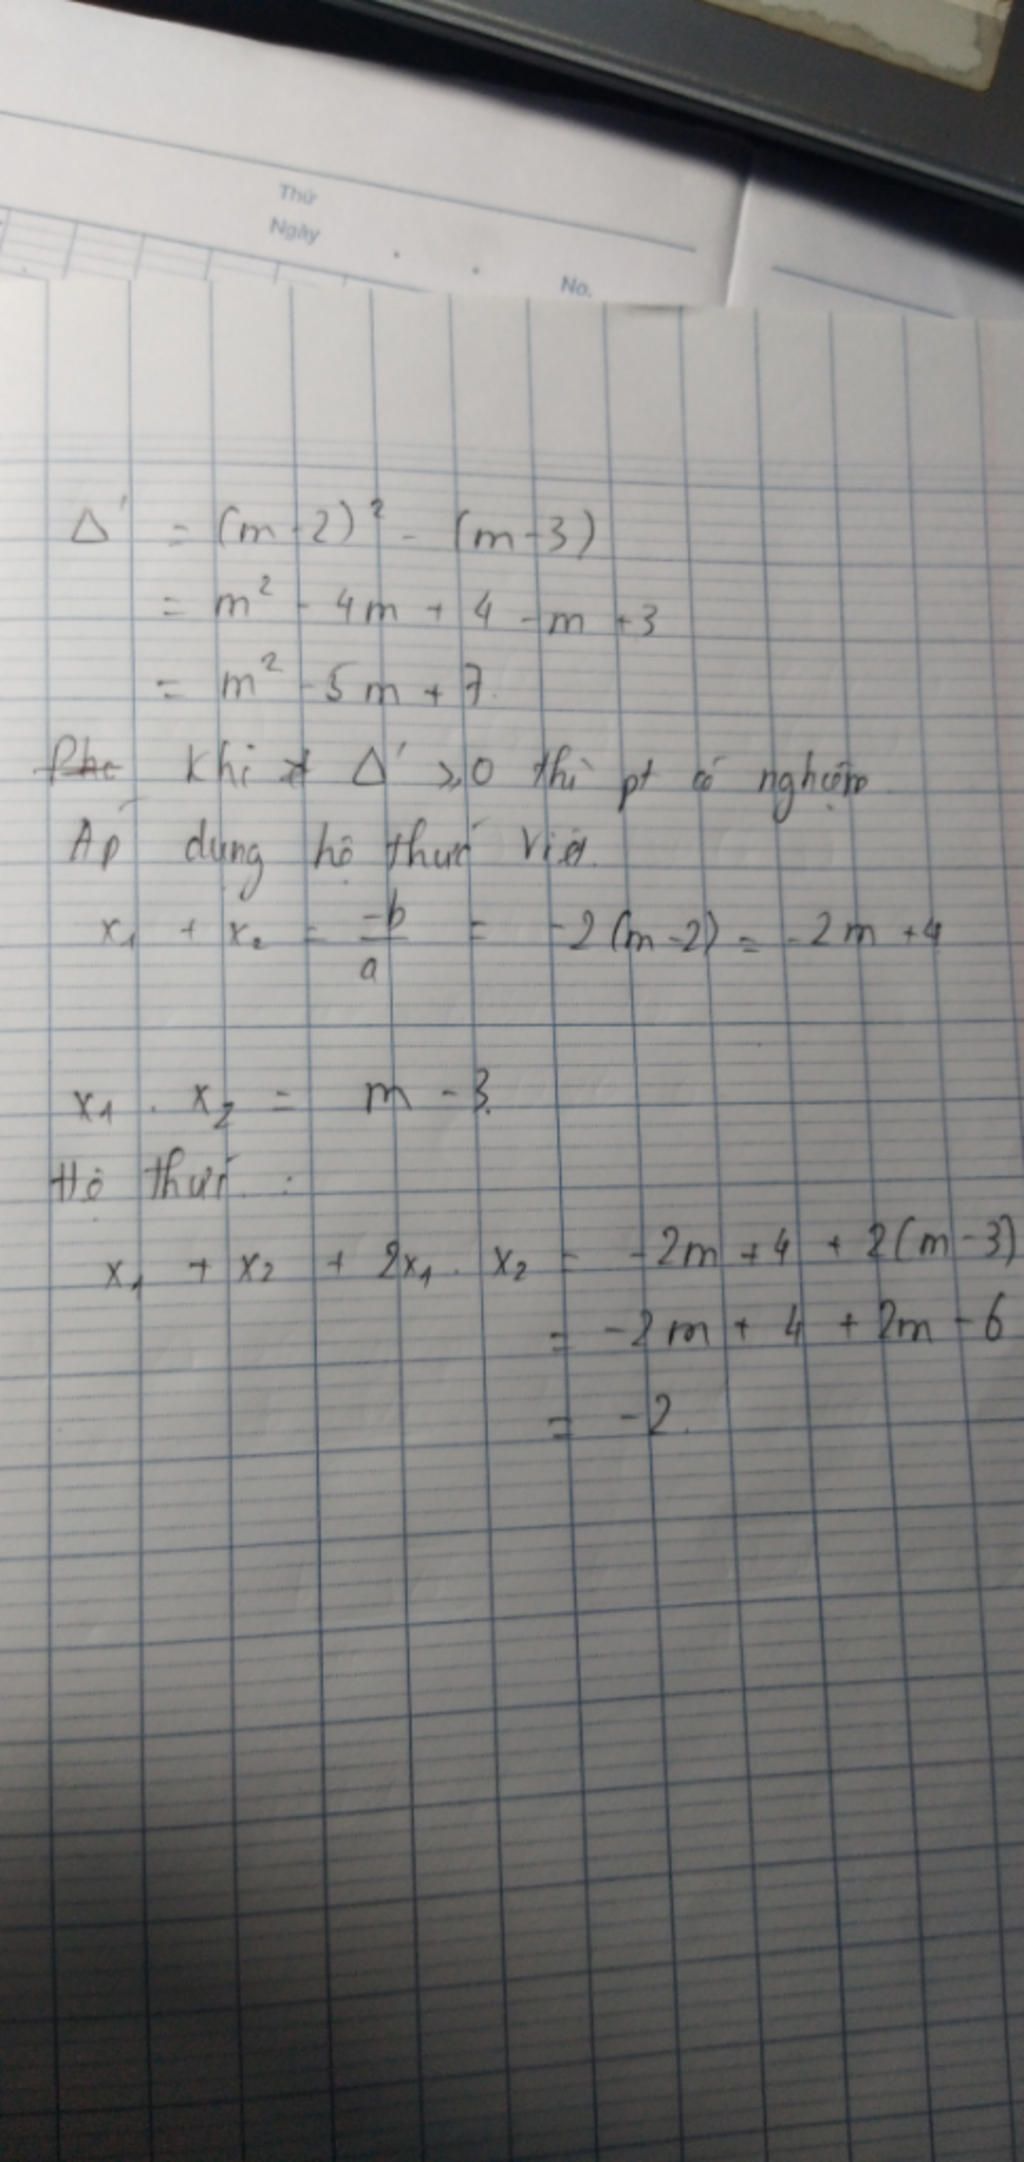 Thứ
Ngày
No.
Δ' = (m-2)² - (m-3)
= m² - 4m + 4 - m + 3
= m² - 5m + 7
Khi Δ' ≥ 0 thì pt có nghiệm
Áp dụng hệ thức Viét.
x₁ + x₂ = -b/a = -2(m-2) = -2m + 4
x₁ . x₂ = m - 3.
Hệ thức :
x₁ + x₂ + 2x₁ . x₂ = -2m + 4 + 2(m-3)
= -2m + 4 + 2m - 6
= -2.